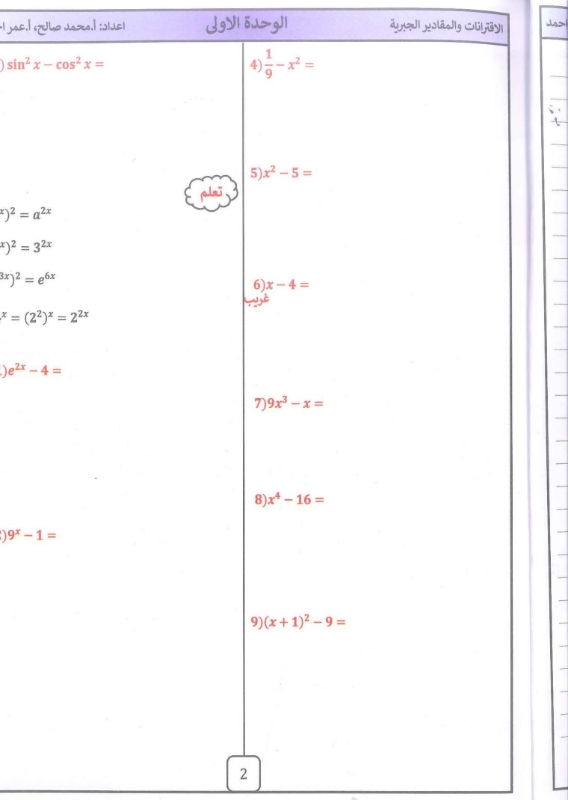 الاقترانات والمقادير الجبرية
الوحدة الاولى
اعداد: أ.محمد صالح، أ.عمر
4) 1/9 − x² =
5)x² − 5 =
6)x − 4 =
غريب
7)9x³ − x =
8)x⁴ − 16 =
9)(x + 1)² − 9 =
) sin² x − cos² x =
تعلم
ˣ)² = a²ˣ
ˣ)² = 3²ˣ
³ˣ)² = e⁶ˣ
ˣ = (2²)ˣ = 2²ˣ
)e²ˣ − 4 =
)9ˣ − 1 =
2